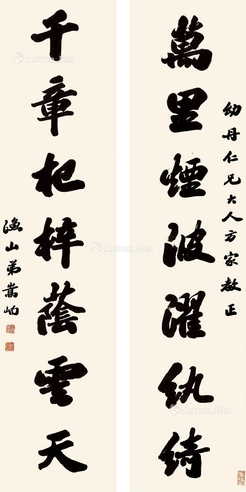 幼丹仁兄大人方家教正
萬里煙波濯紈綺
千章杞梓蔭雲天
漁山弟嵩峋